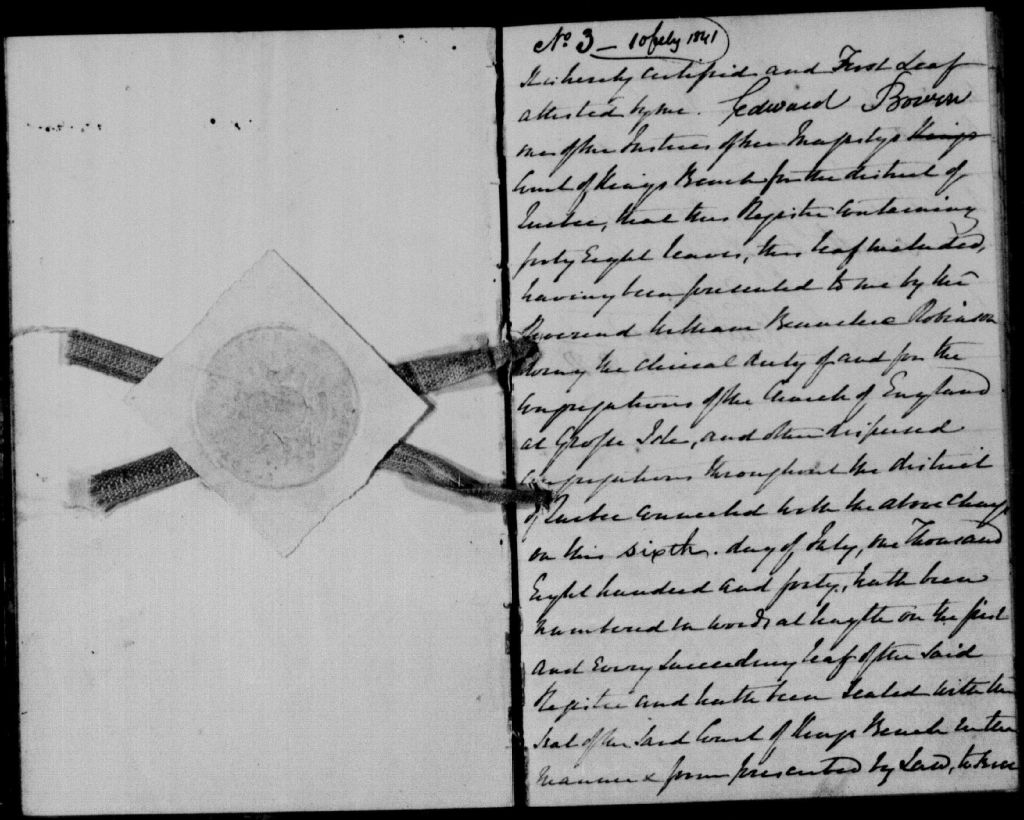 No. 3 - 10 July 1841
It is hereby certified and First Leaf
attested by me. Edward Bowen
one of the Justices of her Majestys Kings
Court of Kings Bench for the district of
Quebec, that this Register containing
forty Eight leaves, this leaf included,
having been presented to me by the
Reverend William Robinson
doing the clerical duty of and for the
Congregations of the Church of England
at Grosse Isle, and other dispersed
Congregations throughout the district
of Quebec connected with the above charge
on this sixth. day of July, one Thousand
Eight hundred and forty, hath been
numbered in words at length on the first
and Every succeeding leaf of the said
Register and hath been Sealed with the
Seal of the said Court of Kings Bench in the
manner & form prescribed by Law, to